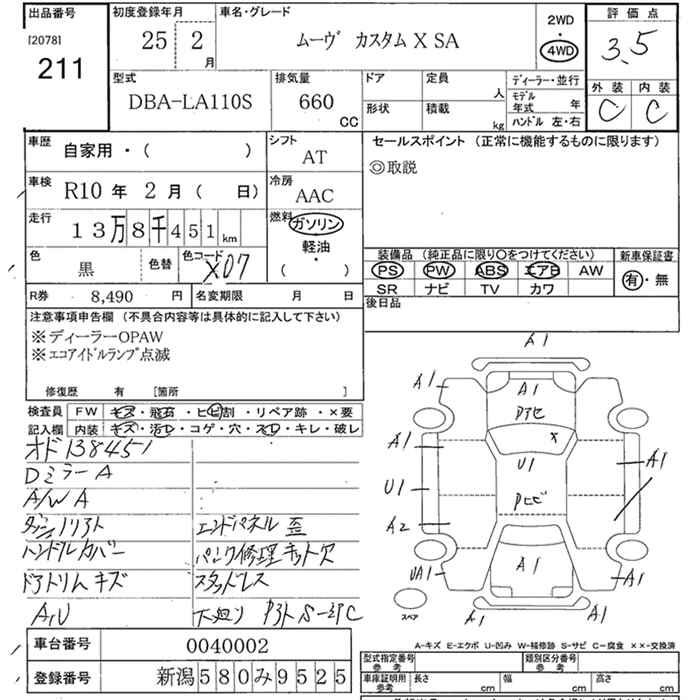 出品番号
[2078]
211
初度登録年月
25 2
月
車名・グレード
ムーヴ カスタム X SA
2WD
・
4WD
評価点
3.5
外装 内装
C C
型式
DBA-LA110S
排気量
660
CC
ドア
定員
人
形状
積載
kg
ディーラー・並行
モデル年式 年
ハンドル 左・右
車歴
自家用・( )
シフト
AT
車検
R10 年 2 月 ( 日)
冷房
AAC
走行
13万8千451 km
燃料
ガソリン
軽油・
( )
色
黒
色替
色コード
X07
R券 8,490 円
名変期限 月 日
セールスポイント (正常に機能するものに限ります)
◎取説
装備品 (純正品に限り○をつけてください)
新車保証書
PS PW ABS エアB AW
SR ナビ TV カワ
有・無
後日品
注意事項申告欄 (不具合内容等は具体的に記入して下さい)
※ディーラーOPAW
※エコアイドルランプ点滅
修復歴 有 [箇所 ]
検査員
記入欄
FW キズ・飛石・ヒビ割・リペア跡・×要
内装 キズ・汚レ・コゲ・穴・スレ・キレ・破レ
オド138451
Dミラー A
A/W A
ハンドルカバー
ドアトリム キズ
A,U
エンドパネル 歪
パンク修理キット欠
スタッドレス
下廻り
A1
A1
A1
Pアセ
A1
×
U1
A1
U1
Pヒビ
A2
A1
UA1
A1
A1
A1
スペア
A-キズ E-エクボ U-凹み W-補修跡 S-サビ C-腐食 ××-交換済
車台番号 0040002
登録番号 新潟580み9525
型式指定番号
参考
類別区分番号
参考
車庫証明用
参考
長さ cm
幅 cm
高さ cm